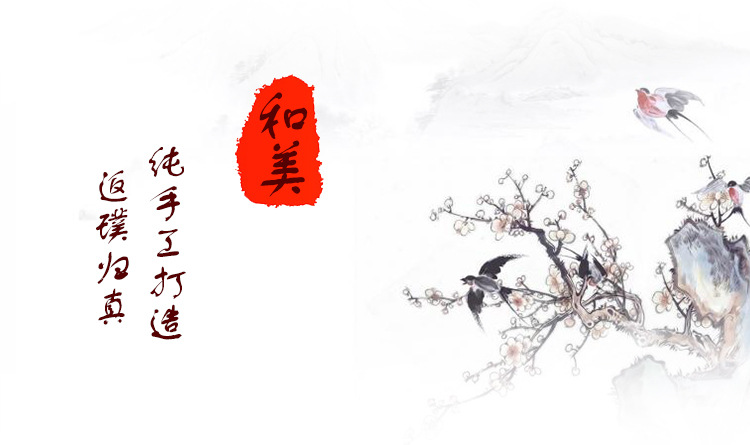 和美
纯手工打造
返璞归真